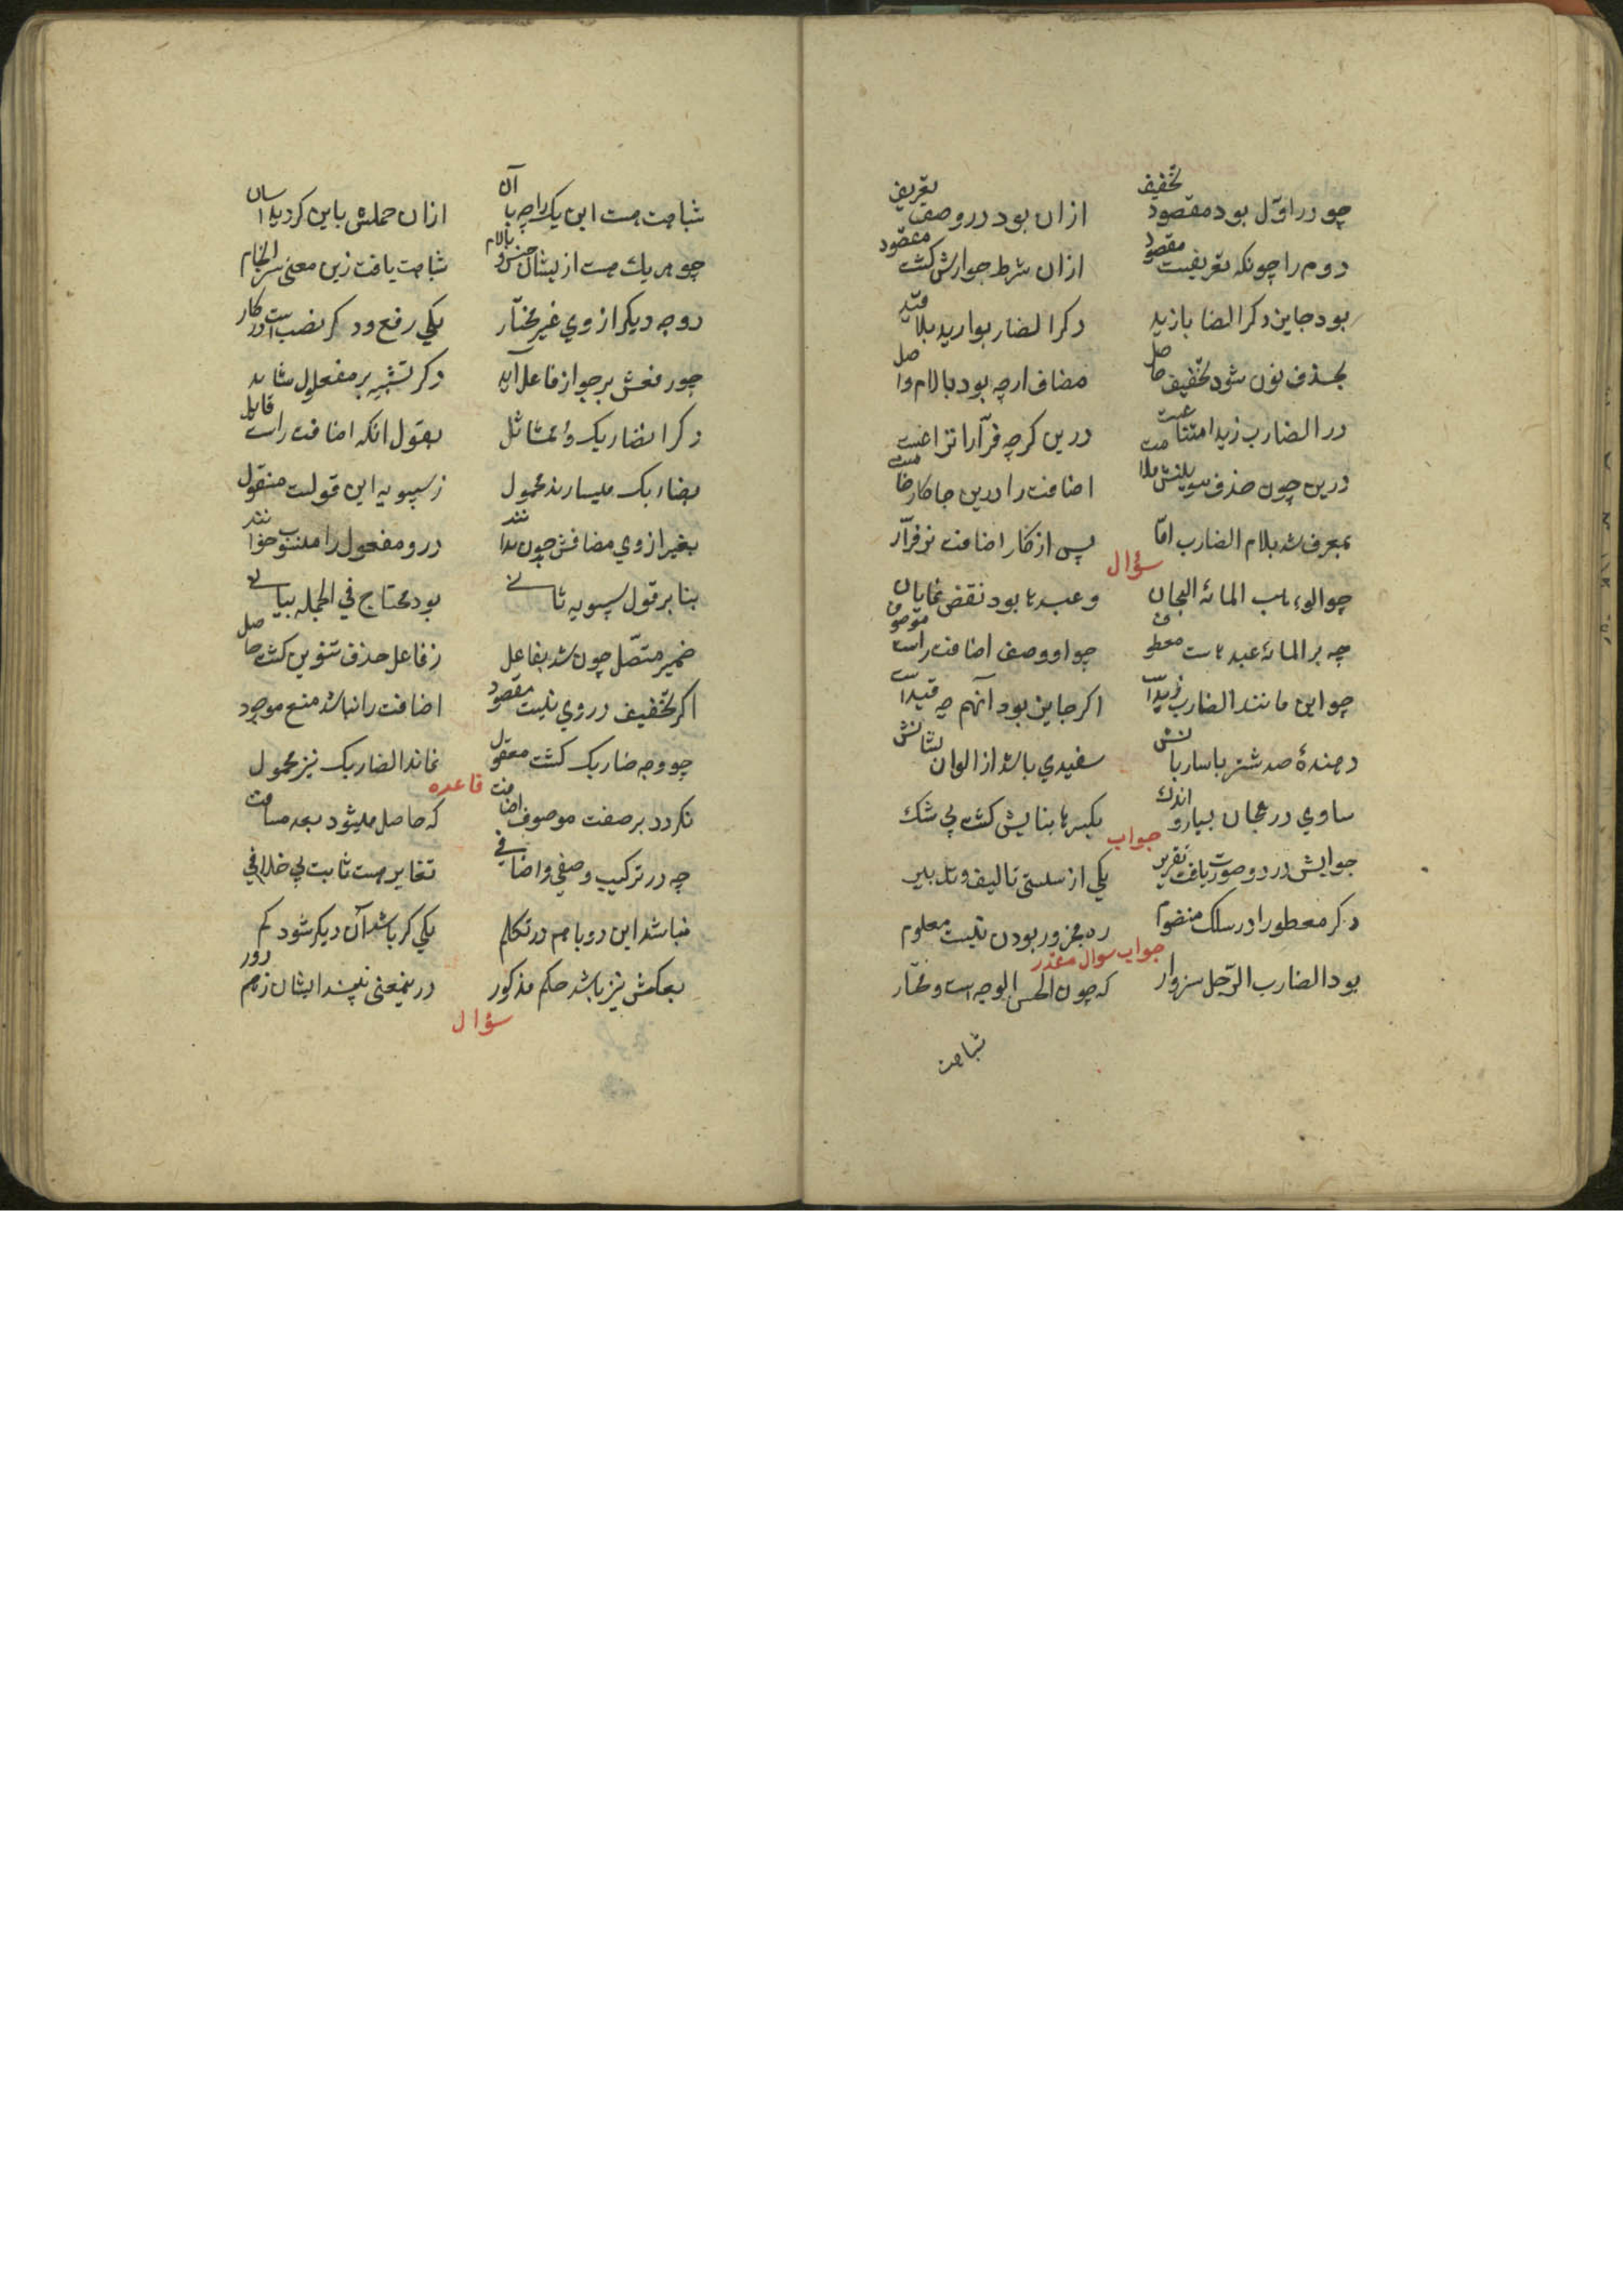 چو در اوّل بود مقصود تخفیف ازان بود در وصف تعریف
دوم را چونکه تعریفست مقصود ازان شرط جوازش گشت معقود
بود جایز دکر الضا بازید دکر الضاربوا زید بلا قید
بحذف نون شود تخفیف حاصل مضاف ارچه بود بالام واصل
در الضارب زید امتناعست درین کرچه فرّا را نزاعست
درین چون حذف تنوینش بلامست اضافت را درین جا کار خامست
بمعرف شد بلام الضارب امّا پس از کار اضافت نزد فرّا
سؤال
چو الواهب المائة الهجان و عبدها بود نقض نمایان
چه بر المائة عبدهاست معطوف چو او وصف اضافت راست موصوف
چو این مانند الضارب زیدست اگر جایز بود آنهم چه قیدست
دهندهٔ صد شتر با ساربانش سفیدی باشد از الوان نشانش
مساوی در هجان بسیار و اندک بکسر ها بنایش گشت بی شک
جواب
جوابش در دو صورت یافت تقریر یکی از سستی تالیف و تدبیر
دکر معطو را در سلک منضوم ره مجرور بودن نیست معلوم
جواب سوال مقدر
بود الضارب الرّجل سزوار که چون الحسن الوجه است و مختار
شباهت
شباهت هست این یک را چه با آن ازان حملش باین کردید آسان
چو هر یک هست از یشان جنس و بالام شباهت یافت زین معنی سرانجام
دو وجه دیگر از وی غیر مختار یکی رفع و دکر نصب است در کار
چو رفعش بر جواز فاعل آید دکر تشبیه بر مفعول شاید
دکر الضاربک و امثاثل بقول انکه اضافت راست قایل
بضاربک میسازند محمول ز سیبویه این قولست منقول
بغیر از وی مضافش چون ندانند درو مفعول را منسوب خوانند
بنا بر قول سیبویه ثانی بود محتاج فی الجمله بیانی
ضمیر متّصل چون شد بفاعل ز فاعل حذف تنوین گشت حاصل
اکر تخفیف در وی نیست مقصود اضافت را نباشد منع موجود
چو وجه ضاربک گشت معقول نماند الضاربک نیز محمول
قاعده
نکردد بر صفت موصوف اضافت که حاصل میشود بعد مسافت
چه در ترکیب وصفی و اضافی تغایر هست ثابت بی خلافی
نباشد این دو با هم در تکلم یکی کر باشد آن دیگر شود کم
بعکسش نیز باشد حکم مذکور درینمعنی نیند ایشان زهم دور
سؤال